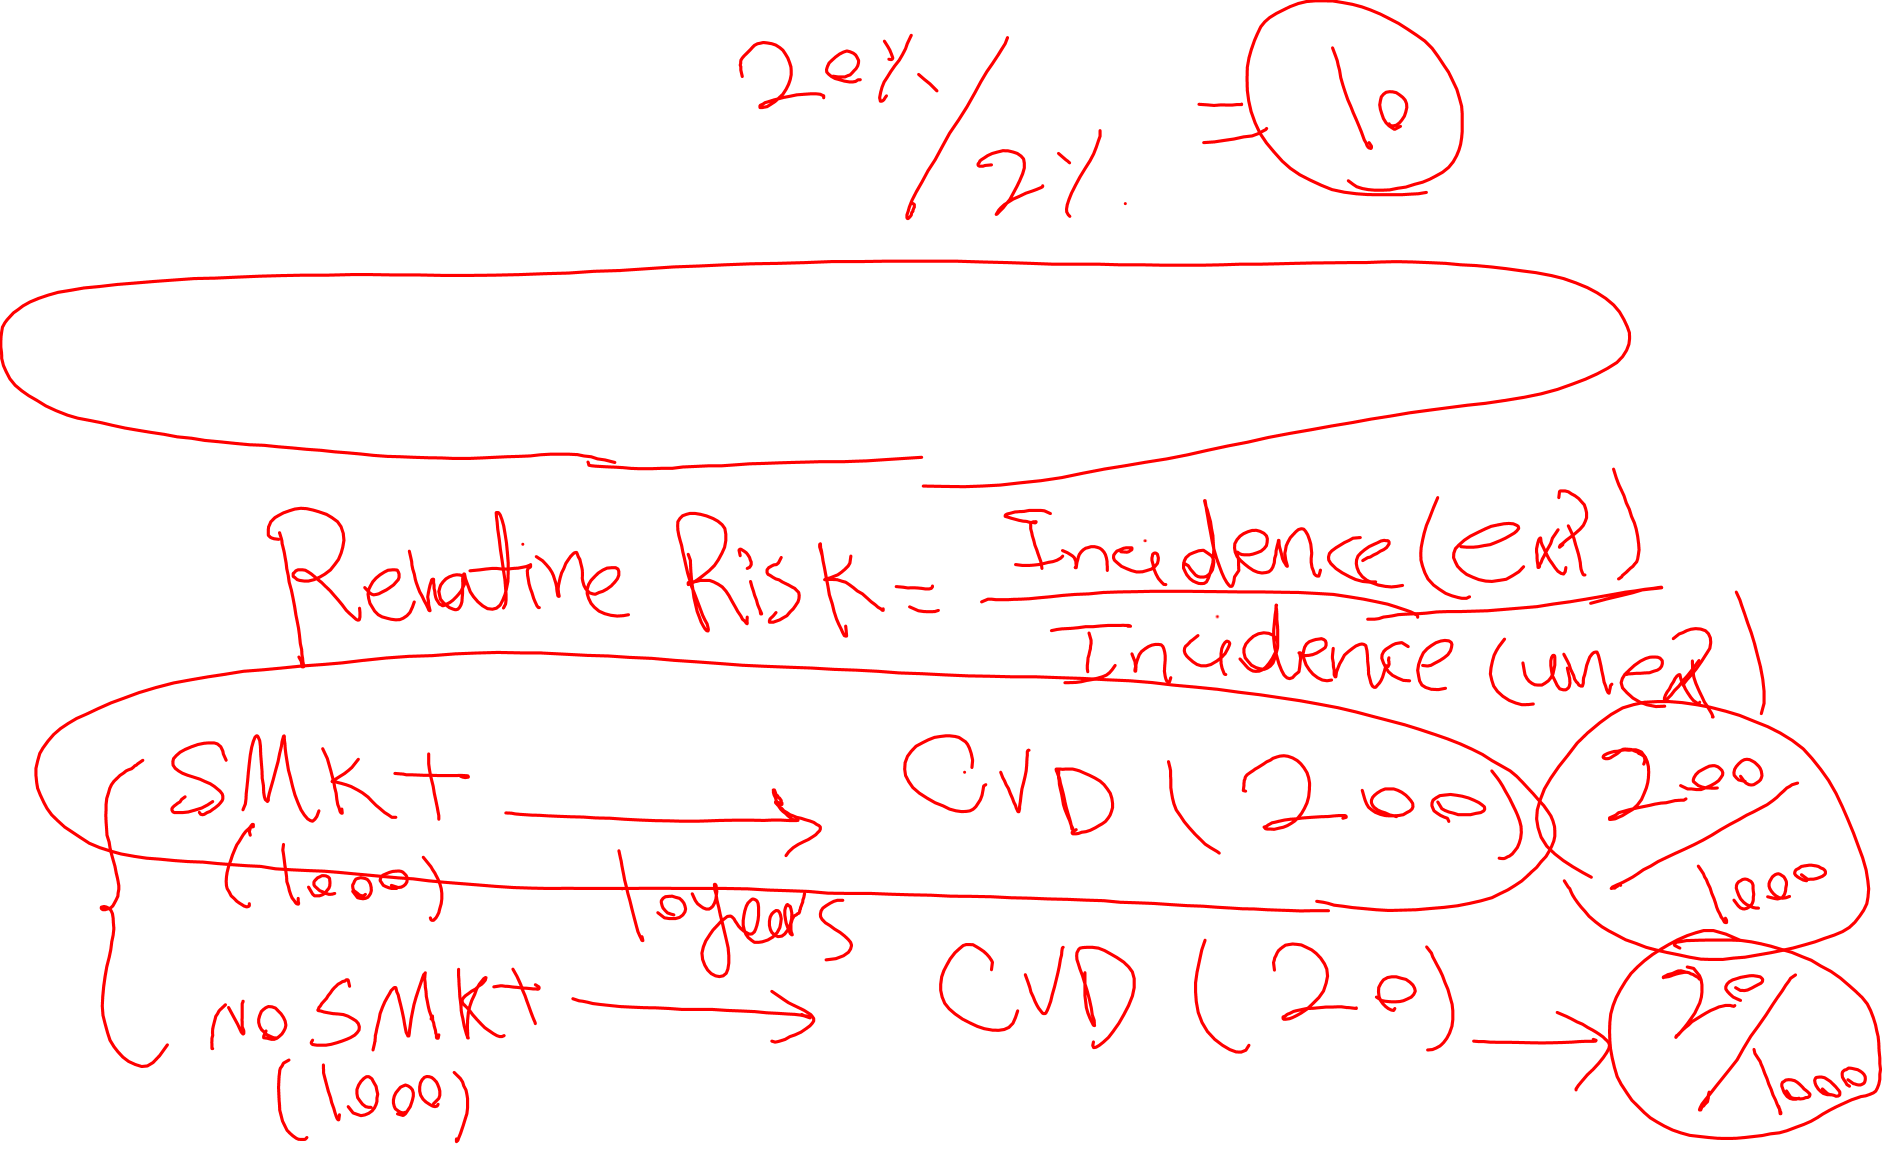 20%/2% = 10
Relative Risk = Incidence (exp)
Incidence (unexp)
SMK+ → CVD (200) 200/1000
(1000) 10 years
NO SMK+ → CVD (20) → 20/1000
(1000)